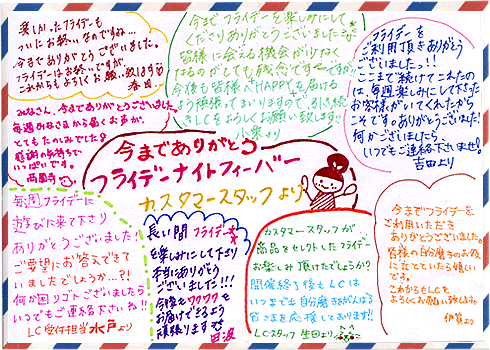 楽しかったフライデーも
ついにお終いなのですね…
今までありがとうございました。
フライデーはお終いですが、
これからもよろしくお願い致します
春日
今までフライデーを楽しみにして
くださりありがとうございました
皆様に会える機会が少なく
なるのがとても残念です
今後も皆様へHAPPYを届ける
よう頑張ってまいりますので、引き続き
LCをよろしくお願い致します!!
小栗より
フライデーを
ご利用頂きありがとう
ございましたっ!!
ここまで続けてこれたの
は、毎週楽しみにして下さった
お客様がいてくれたから
こそです。ありがとうございました!
何かございましたら、
いつでもご連絡下さいませ!
吉田より
みなさん、今までありがとうございました。
毎週みなさまから届くお声が、
とてもたのしみでした!
感謝の気持ちで
いっぱいです。
西園寺
今までありがとう
フライデーナイトフィーバー
カスタマースタッフより
毎週フライデーに
遊びに来て下さり
ありがとうございました!
ご要望にお答えできて
いましたでしょうか…?!
何か困りごとございましたら
いつでもご連絡下さいね!!
LC受付担当水戸より
長い間フライデーを
楽しみにして下さり
本当にありがとう
ございました!!!
今後もワクワクを
お届けできるよう
頑張ります
カスタマースタッフが
商品をセレクトしたフライデー
お楽しみ頂けてでしょうか?
開催終了後もLCは
いつまでも自分磨きをがんばる
皆さまを応援しております!!
LCスタッフ 生田より
今までフライデーを
ご利用いただき
ありがとうございました。
皆様の自分磨きのお役
に立てていたら嬉しい
です。
これからもLCを
よろしくお願い致します。
伊賀より